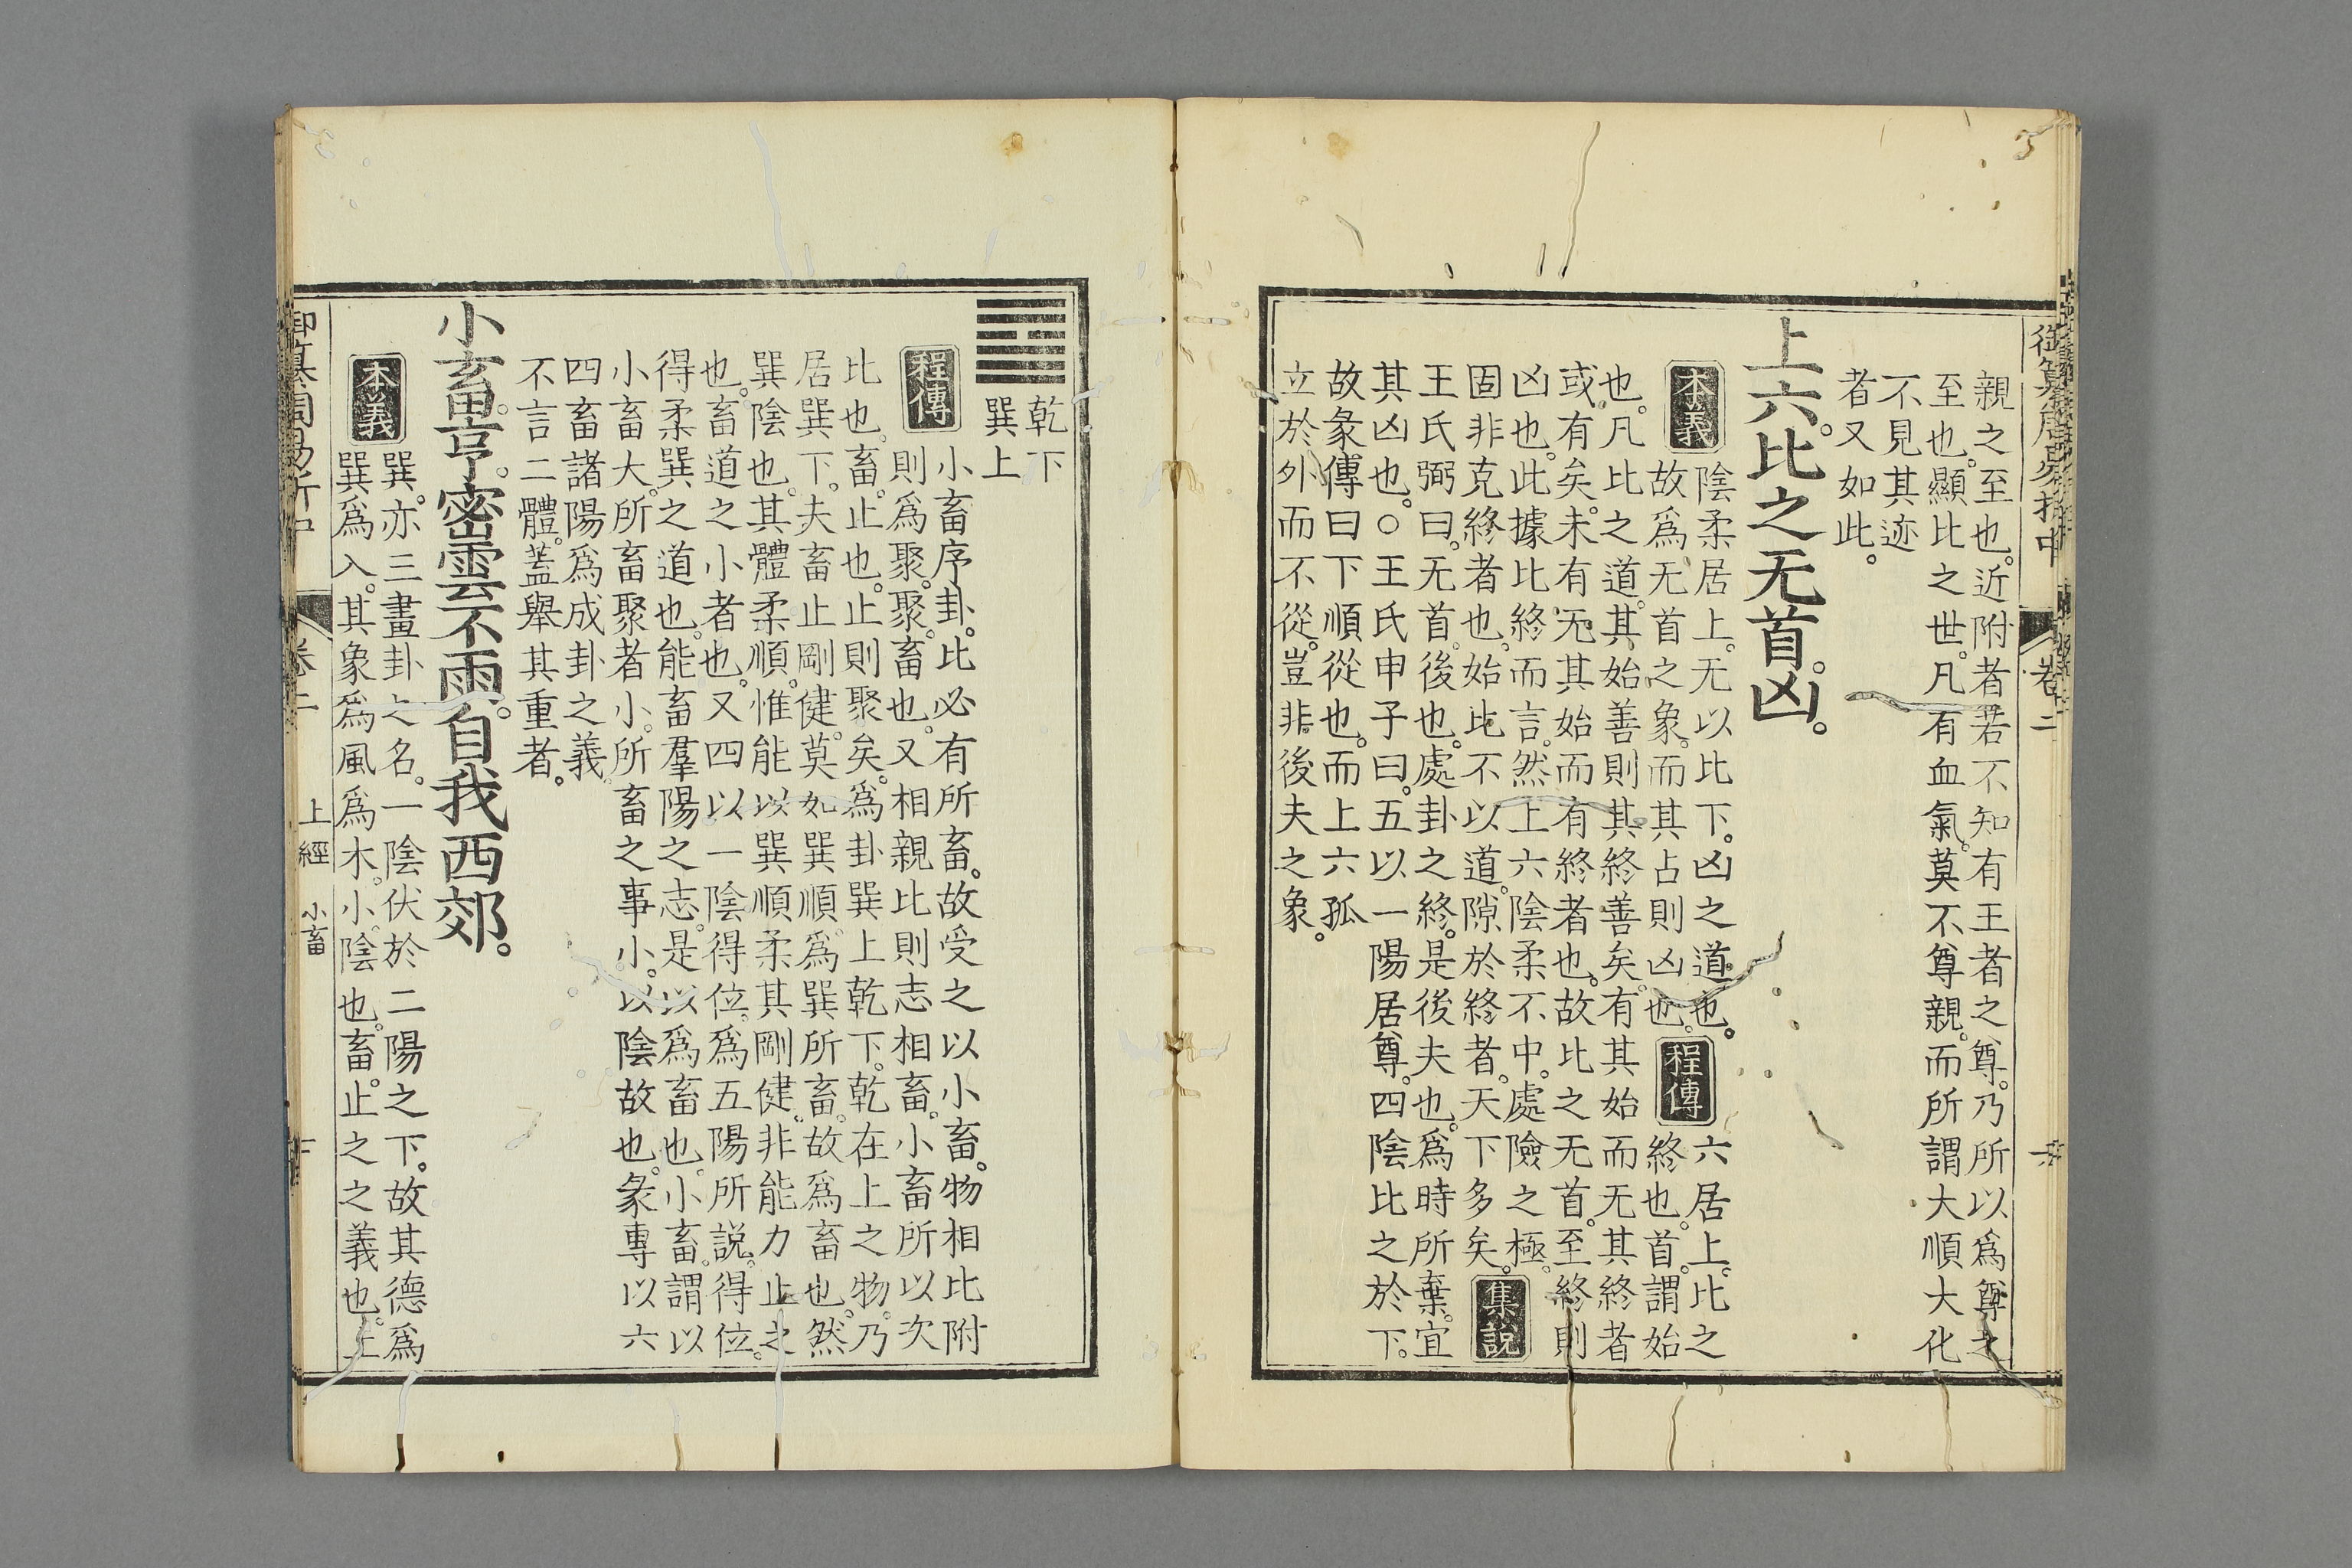 御纂周易折中
卷二
親之至也。近附者若不知有王者之尊。乃所以爲尊之
至也。顯比之世。凡有血氣。莫不尊親。而所謂大順大化
不見其迹
者又如此。
上六。比之无首。凶。
本義
陰柔居上。无以比下。凶之道也。
故爲无首之象。而其占則凶也。
程傳
六居上。比之
終也。首。謂始
也。凡比之道。其始善則其終善矣。有其始而无其終者
或有矣。未有无其始而有終者也。故比之无首。至終則
凶也。此據比終而言。然上六陰柔不中。處險之極。
固非克終者也。始比不以道。隙於終者。天下多矣。
集說
王氏弼曰。无首。後也。處卦之終。是後夫也。爲時所棄。宜
其凶也。○王氏申子曰。五以一陽居尊。四陰比之於下。
故彖傳曰下順從也。而上六孤
立於外而不從。豈非後夫之象。
乾下
巽上
程傳
小畜序卦。比必有所畜。故受之以小畜。物相比附
則爲聚。聚。畜也。又相親比則志相畜。小畜所以次
比也。畜。止也。止則聚矣。爲卦巽上乾下。乾在上之物。乃
居巽下。夫畜止剛健。莫如巽順。爲巽所畜。故爲畜也。然
巽陰也。其體柔順。惟能以巽順柔其剛健。非能力止之
也。畜道之小者也。又四以一陰得位。爲五陽所說。得位。
得柔巽之道也。能畜羣陽之志。是以爲畜也。小畜。謂以
小畜大。所畜聚者小。所畜之事小。以陰故也。彖專以六
四畜諸陽爲成卦之義
不言二體。蓋舉其重者。
小畜。亨。密雲不雨。自我西郊。
本義
巽。亦三畫卦之名。一陰伏於二陽之下。故其德爲
巽爲入。其象爲風爲木。小。陰也。畜。止之之義也。上
卷二
上經
小畜